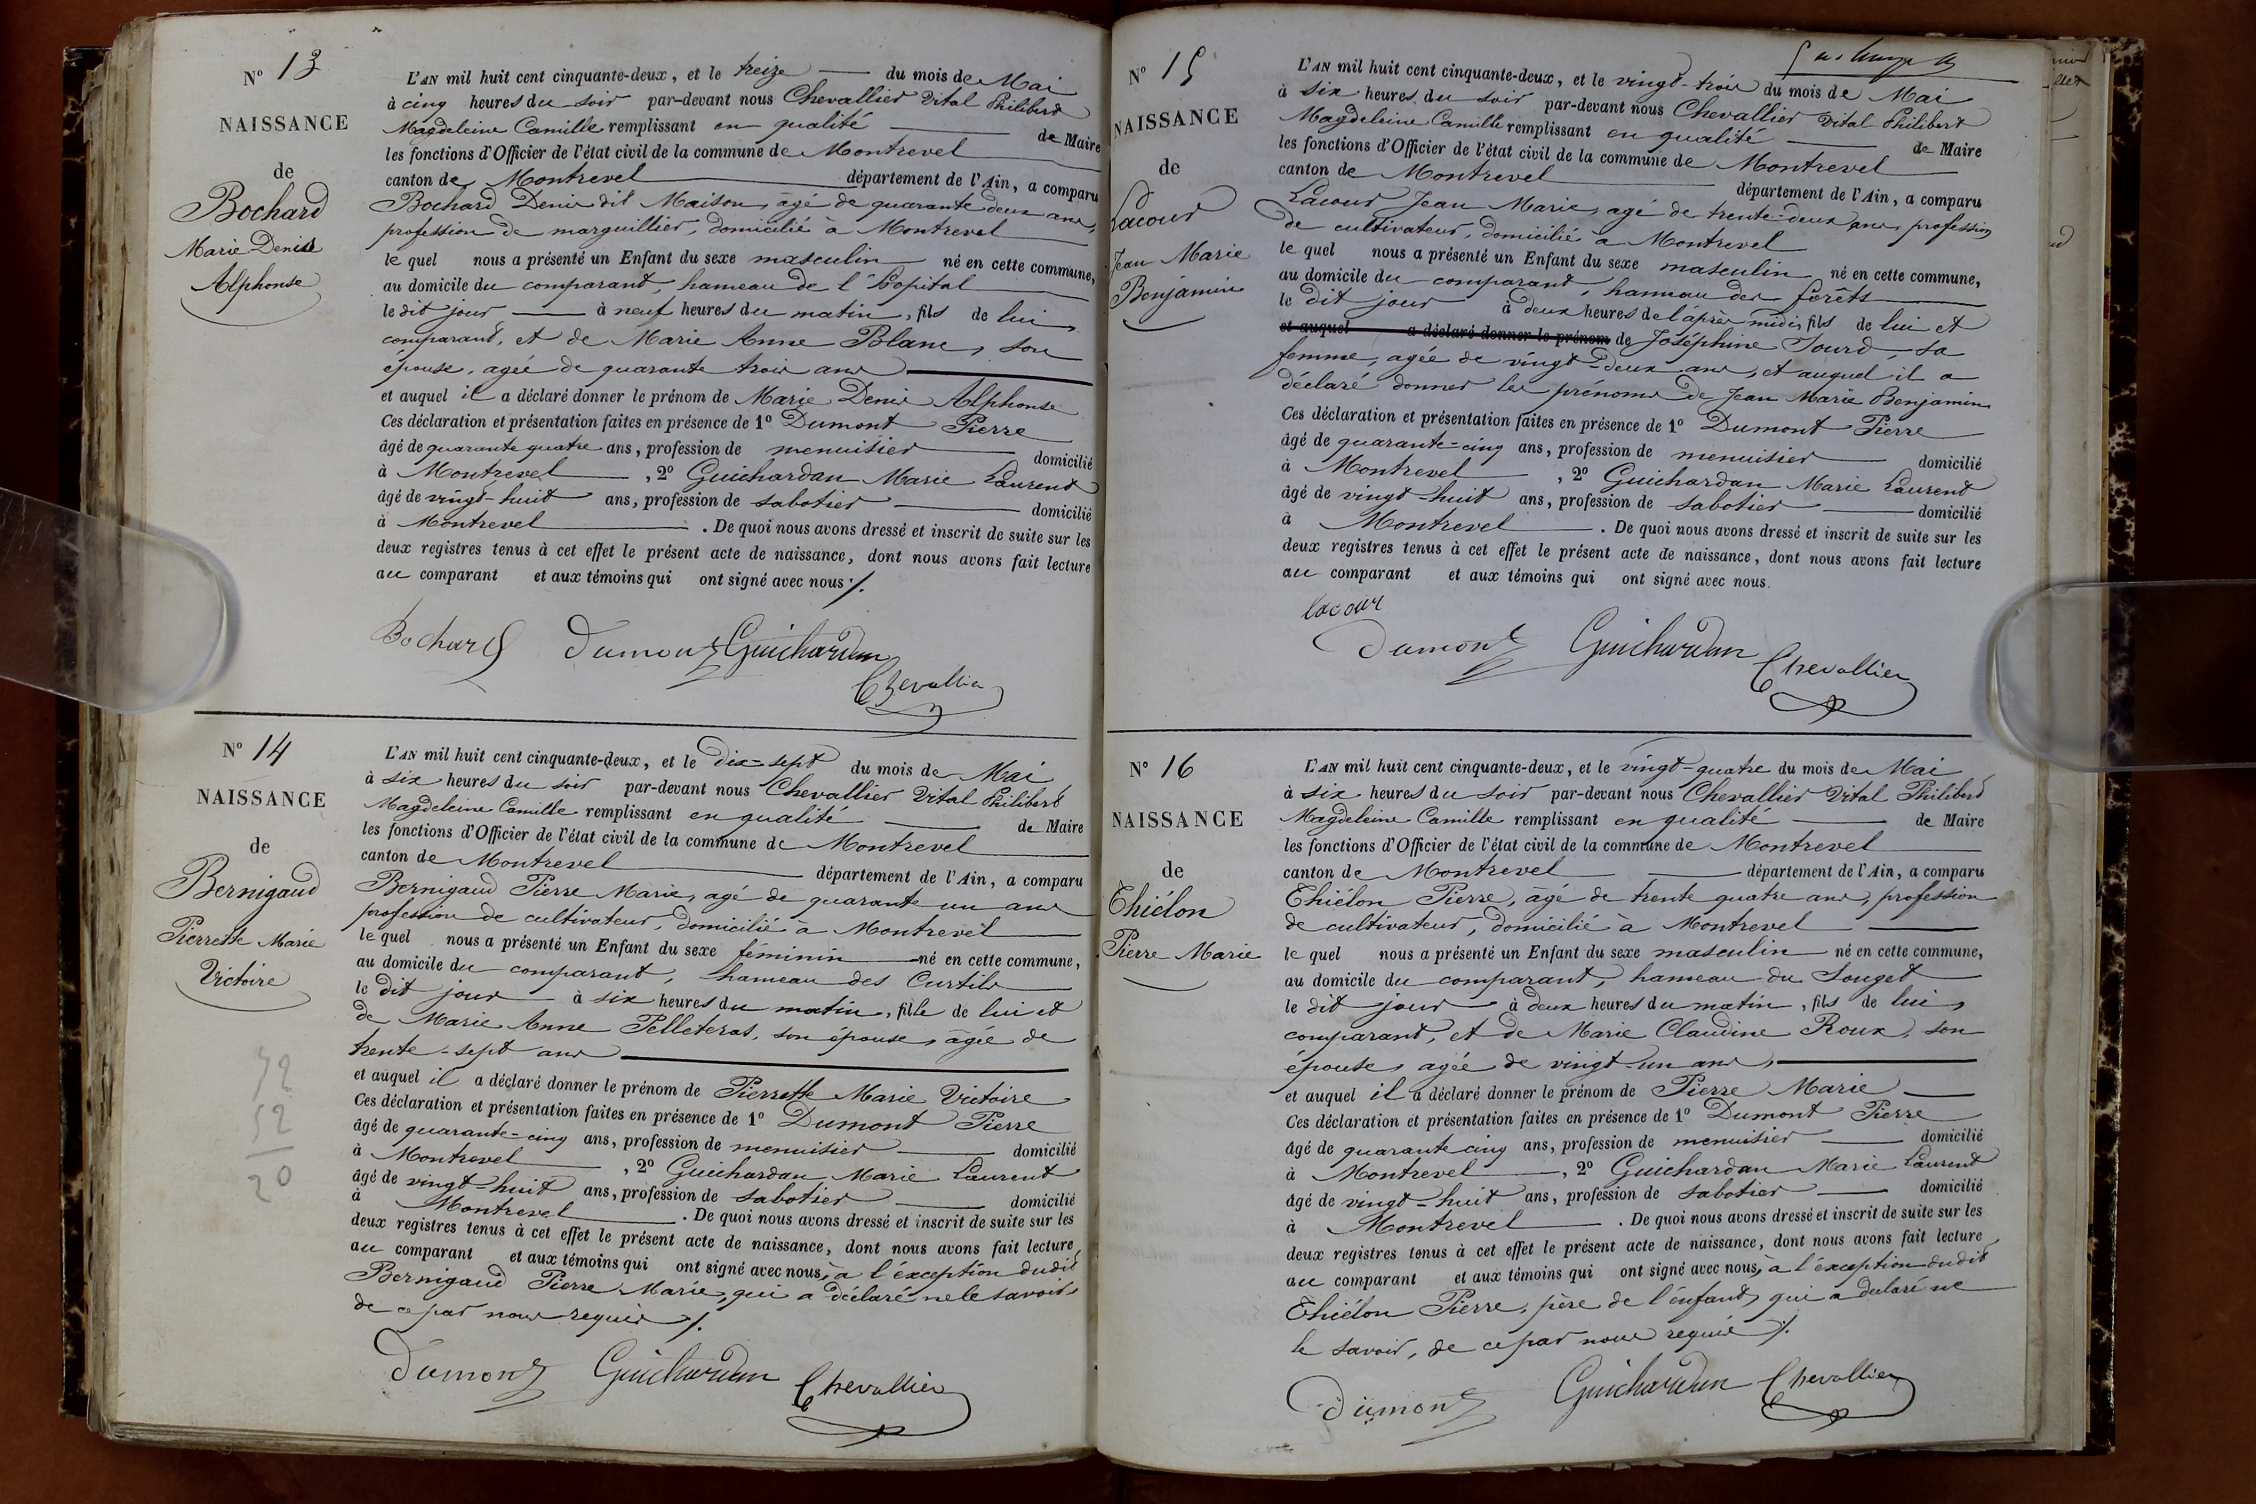 N° 13
NAISSANCE
de
Bochard
Marie Denis
Alphonse
L'AN mil huit cent cinquante-deux, et le treize du mois de Mai
à cinq heures du soir par-devant nous Chevallier Vital Philibert
Magdeleine Camille remplissant en qualité de Maire
les fonctions d'Officier de l'état civil de la commune de Montrevel
canton de Montrevel département de l'Ain, a comparu
Bochard Denis dit Maison, âgé de quarante deux ans,
profession de marguillier, domicilié à Montrevel
le quel nous a présenté un Enfant du sexe masculin né en cette commune,
au domicile du comparant, hameau de l'hopital
le dit jour à neuf heures du matin, fils de lui
comparant, et de Marie Anne Blanc, son
épouse, agée de quarante trois ans
et auquel il a déclaré donner le prénom de Marie Denis Alphonse
Ces déclaration et présentation faites en présence de 1° Dumont Pierre
âgé de quarante quatre ans, profession de menuisier domicilié
à Montrevel, 2° Guichardan Marie Laurent
âgé de vingt-huit ans, profession de sabotier domicilié
à Montrevel. De quoi nous avons dressé et inscrit de suite sur les
deux registres tenus à cet effet le présent acte de naissance, dont nous avons fait lecture
au comparant et aux témoins qui ont signé avec nous ./.
Bochard Dumont Guichardan
Chevallier
N° 14
NAISSANCE
de
Bernigaud
Pierrette Marie
Victoire
72
52
20
L'AN mil huit cent cinquante-deux, et le dix-sept du mois de Mai
à six heures du soir par-devant nous Chevallier Vital Philibert
Magdeleine Camille remplissant en qualité de Maire
les fonctions d'Officier de l'état civil de la commune de Montrevel
canton de Montrevel département de l'Ain, a comparu
Bernigaud Pierre Marie, agé de quarante un ans
profession de cultivateur, domicilié à Montrevel
le quel nous a présenté un Enfant du sexe féminin né en cette commune,
au domicile du comparant, hameau des Curtils
le dit jour à six heures du matin, fille de lui et
de Marie Anne Pelleteras, son épouse, âgée de
trente-sept ans
et auquel il a déclaré donner le prénom de Pierrette Marie Victoire
Ces déclaration et présentation faites en présence de 1° Dumont Pierre
âgé de quarante-cinq ans, profession de menuisier domicilié
à Montrevel, 2° Guichardan Marie Laurent
âgé de vingt-huit ans, profession de sabotier domicilié
à Montrevel. De quoi nous avons dressé et inscrit de suite sur les
deux registres tenus à cet effet le présent acte de naissance, dont nous avons fait lecture
au comparant et aux témoins qui ont signé avec nous, à l'éxception dudit
Bernigaud Pierre Marie, qui a déclaré ne le savoir,
de ce par nous requis ./.
Dumont Guichardan Chevallier
N° 15
NAISSANCE
de
Lacour
Jean Marie
Benjamin
L'AN mil huit cent cinquante-deux, et le vingt-trois du mois de Mai
à six heures du soir par-devant nous Chevallier Vital Philibert
Magdeleine Camille remplissant en qualité de Maire
les fonctions d'Officier de l'état civil de la commune de Montrevel
canton de Montrevel département de l'Ain, a comparu
Lacour Jean Marie, agé de trente-deux ans, profession
de cultivateur, domicilié à Montrevel
le quel nous a présenté un Enfant du sexe masculin né en cette commune,
au domicile du comparant, hameau des forêts
le dit jour à deux heures de l'après midi, fils de lui et
et auquel a déclaré donner le prénom de Joséphine Sourd, sa
femme, agée de vingt-deux ans, et auquel il a
déclaré donner les prénoms de Jean Marie Benjamin
Ces déclaration et présentation faites en présence de 1° Dumont Pierre
âgé de quarante-cinq ans, profession de menuisier domicilié
à Montrevel, 2° Guichardan Marie Laurent
âgé de vingt-huit ans, profession de sabotier domicilié
à Montrevel. De quoi nous avons dressé et inscrit de suite sur les
deux registres tenus à cet effet le présent acte de naissance, dont nous avons fait lecture
au comparant et aux témoins qui ont signé avec nous.
lacour
Dumont Guichardan Chevallier
N° 16
NAISSANCE
de
Thiélon
Pierre Marie
L'AN mil huit cent cinquante-deux, et le vingt-quatre du mois de Mai
à six heures du soir par-devant nous Chevallier Vital Philibert
Magdeleine Camille remplissant en qualité de Maire
les fonctions d'Officier de l'état civil de la commune de Montrevel
canton de Montrevel département de l'Ain, a comparu
Thiélon Pierre, âgé de trente quatre ans, profession
de cultivateur, domicilié à Montrevel
le quel nous a présenté un Enfant du sexe masculin né en cette commune,
au domicile du comparant, hameau du Souget
le dit jour à deux heures du matin, fils de lui,
comparant, et de Marie Claudine Roux, son
épouse, agée de vingt-un ans,
et auquel il a déclaré donner le prénom de Pierre Marie
Ces déclaration et présentation faites en présence de 1° Dumont Pierre
âgé de quarante cinq ans, profession de menuisier domicilié
à Montrevel, 2° Guichardan Marie Laurent
âgé de vingt-huit ans, profession de sabotier domicilié
à Montrevel. De quoi nous avons dressé et inscrit de suite sur les
deux registres tenus à cet effet le présent acte de naissance, dont nous avons fait lecture
au comparant et aux témoins qui ont signé avec nous, à l'éxception dudit
Thiélon Pierre, père de l'enfant, qui a déclaré ne
le savoir, de ce par nous requis ./.
Dumont Guichardan Chevallier